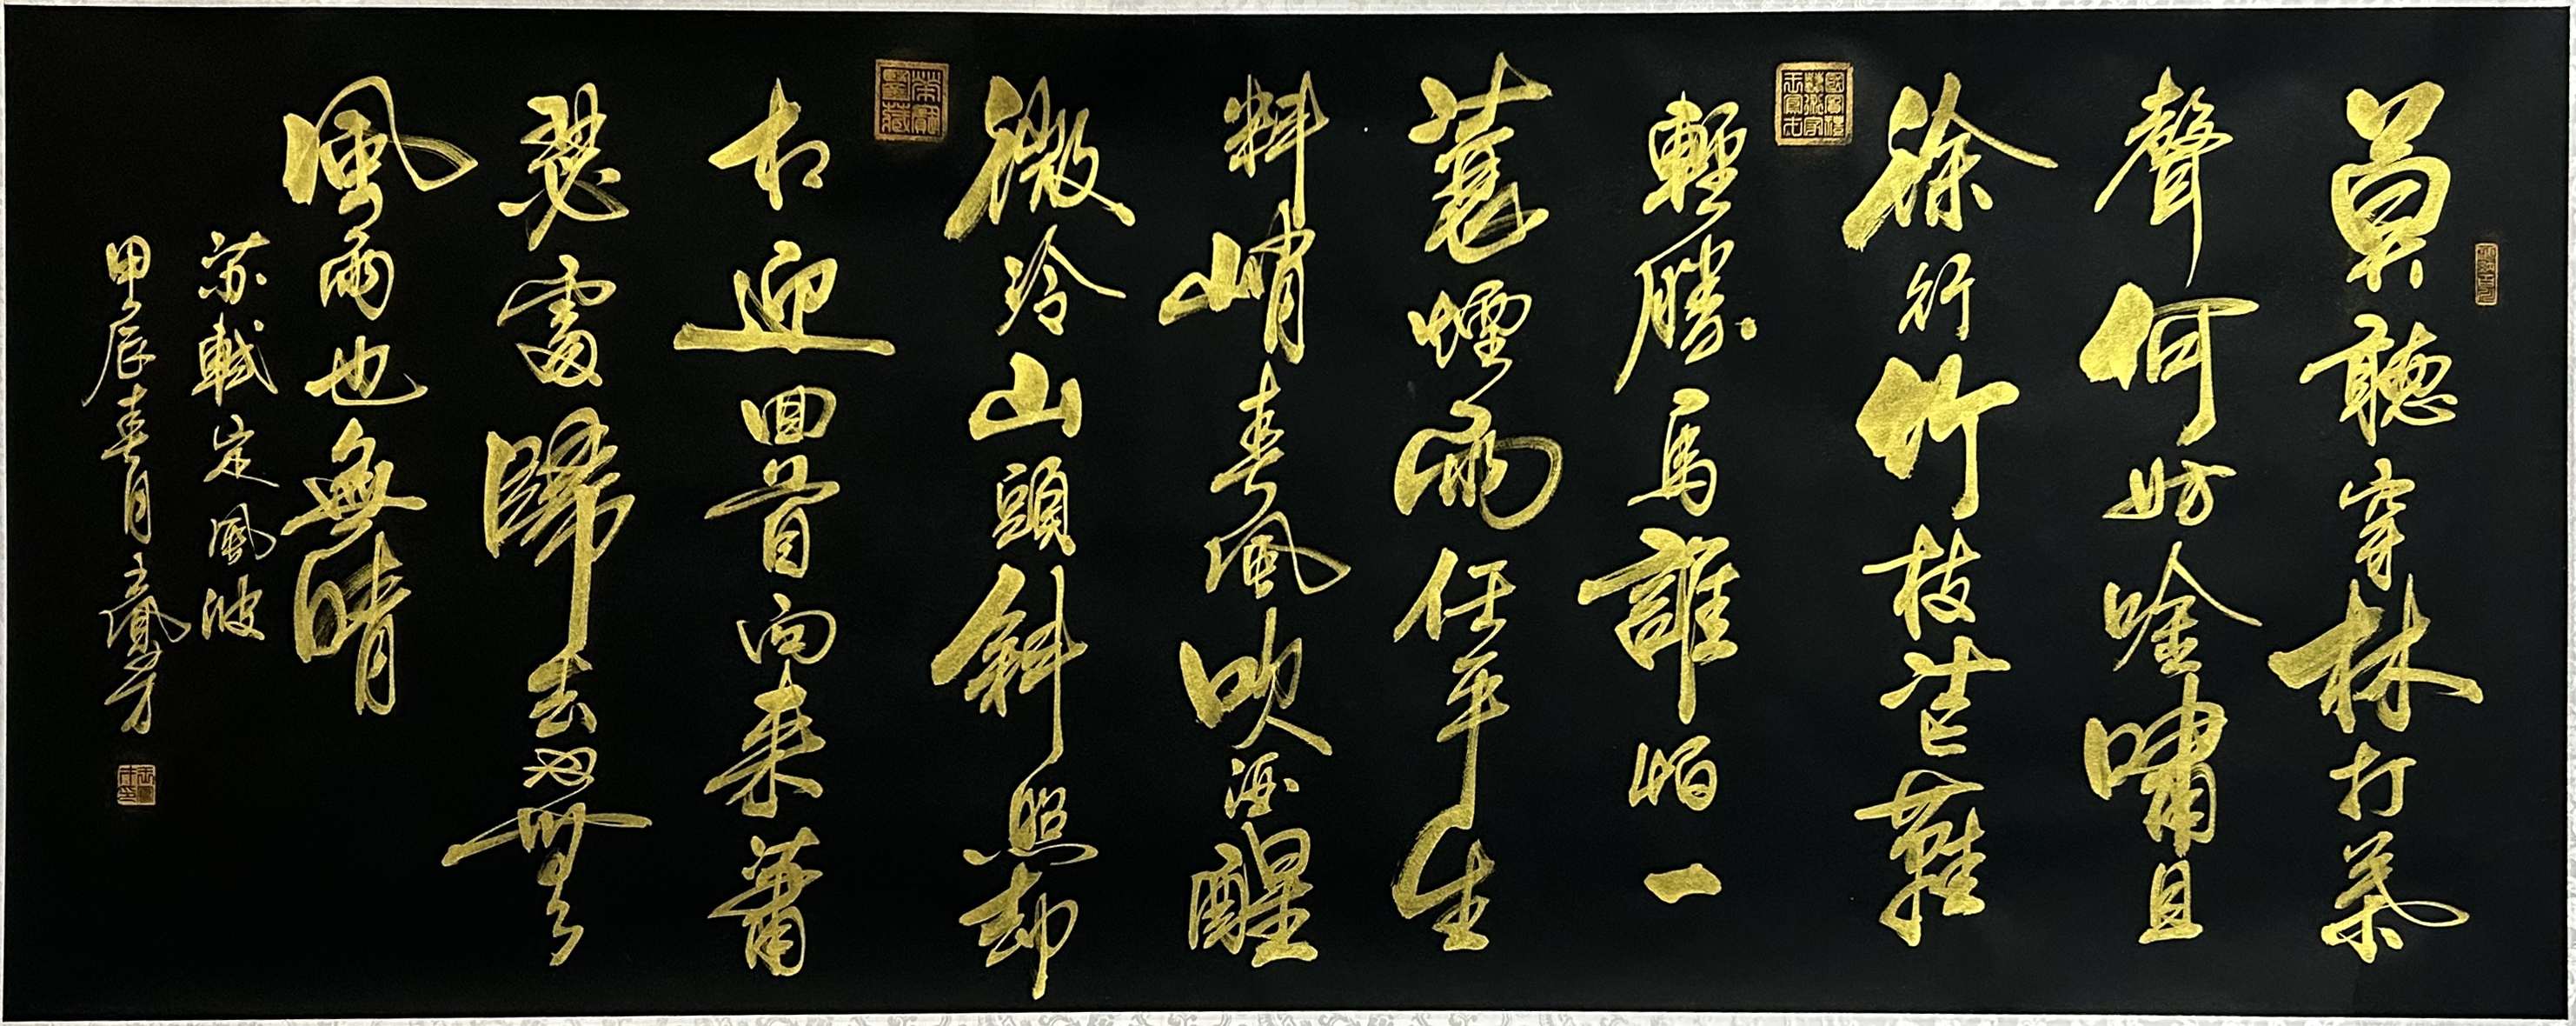 莫聽穿林打葉
聲何妨吟嘯且
徐行竹枝芒鞵
輕勝馬誰怕一
蓑煙雨任平生
料峭春風吹酒醒
微冷山頭斜照却
相迎回首向来蕭
瑟處歸去也無
風雨也無晴
蘇軾定風波
甲辰春月玉鳳才